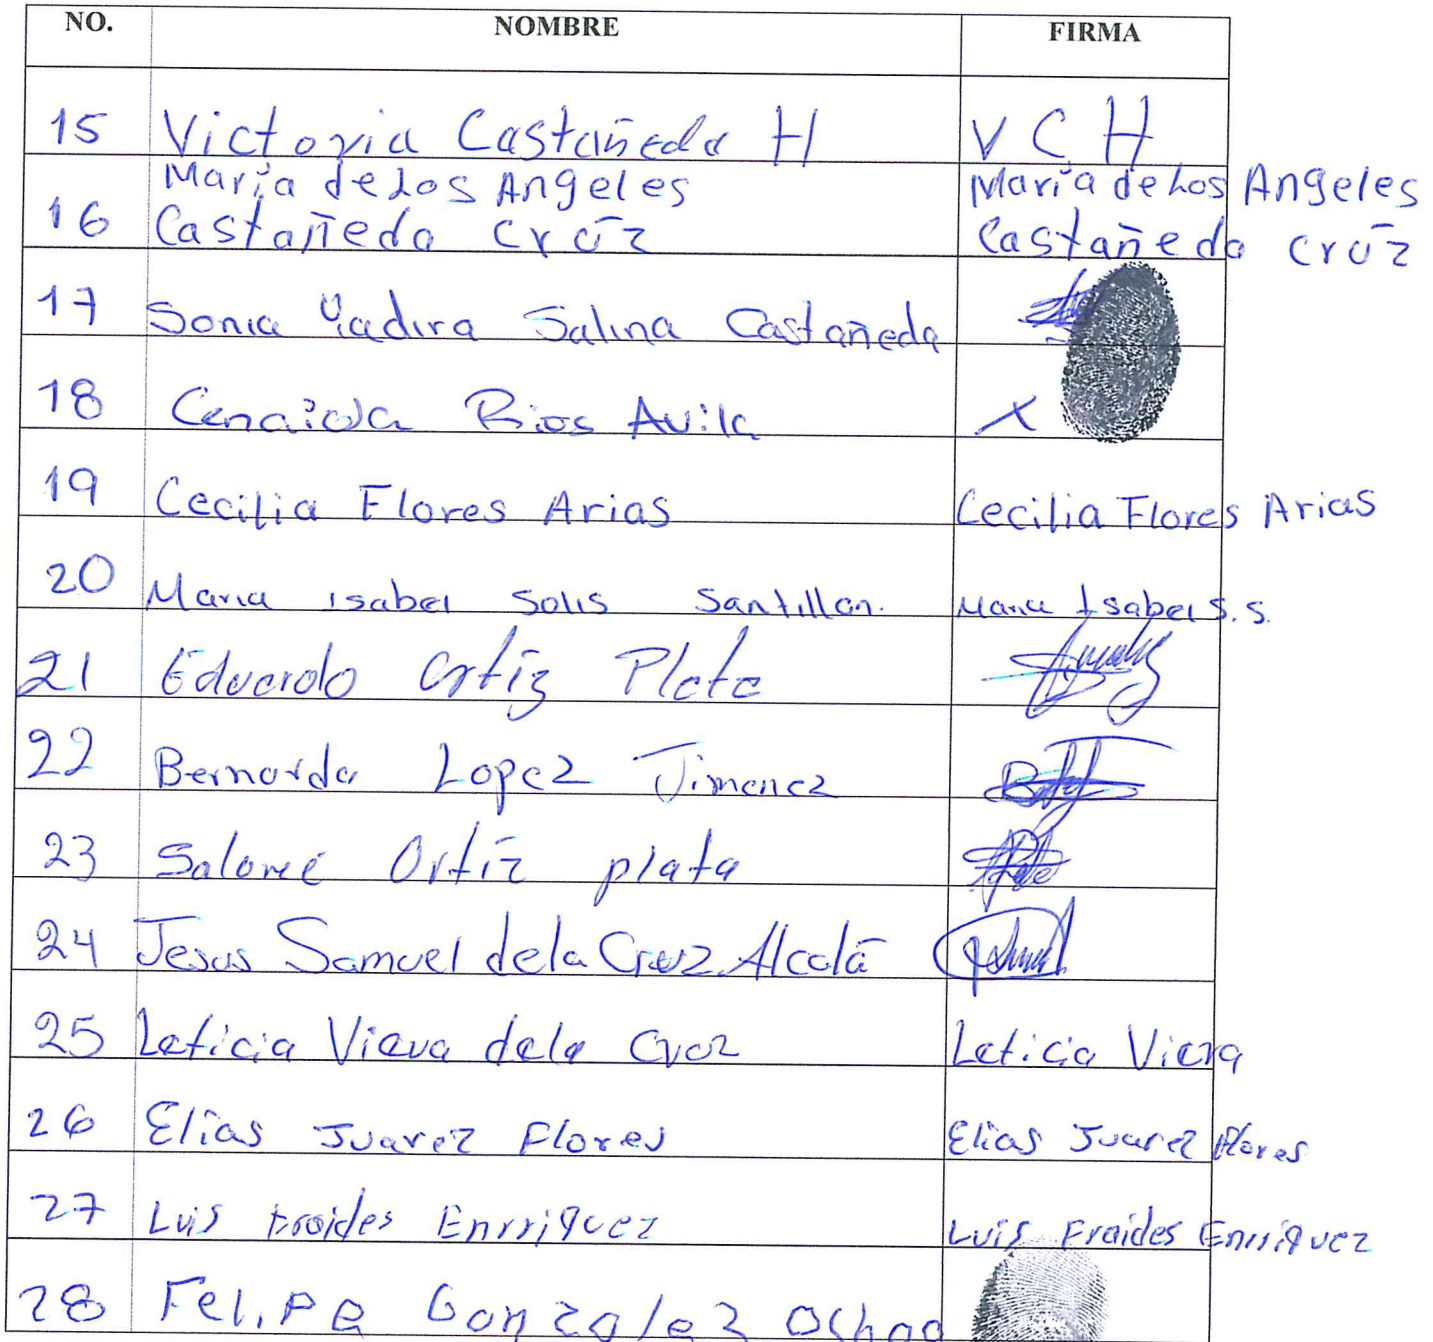 NO. NOMBRE FIRMA
15 Victoria Castañeda H V C H
María de Los Angeles María de Los Angeles
16 Castañeda Crúz Castañeda Crúz
17 Sonia Yadira Salina Castañeda
18 Cenaida Rios Avila X
19 Cecilia Flores Arias Cecilia Flores Arias
20 Maria Isabel Solis Santillan. Maria Isabel S.S.
21 Eduardo Ortiz Plata
22 Bernarda Lopez Jimenez
23 Salomé Ortíz plata
24 Jesus Samuel de la Cruz Alcalá
25 Leticia Viera de la Cruz Leticia Viera
26 Elias Juarez Flores Elias Juarez Flores
27 Luis Eraides Enrriquez Luis Eraides Enrriquez
28 Felipe Gonzalez Ochoa